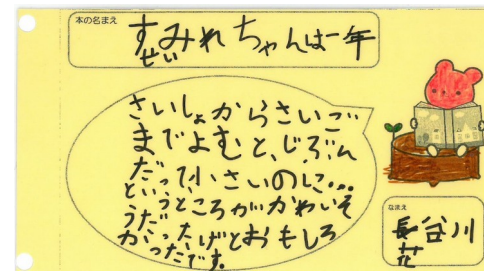 本の名まえ
すみれちゃんは一年
せい
さいしょからさいご
までよむと、じぶん
だって小さいのに…
というところがかわいそ
うだったけどおもしろ
かったです。
なまえ
長谷川
花